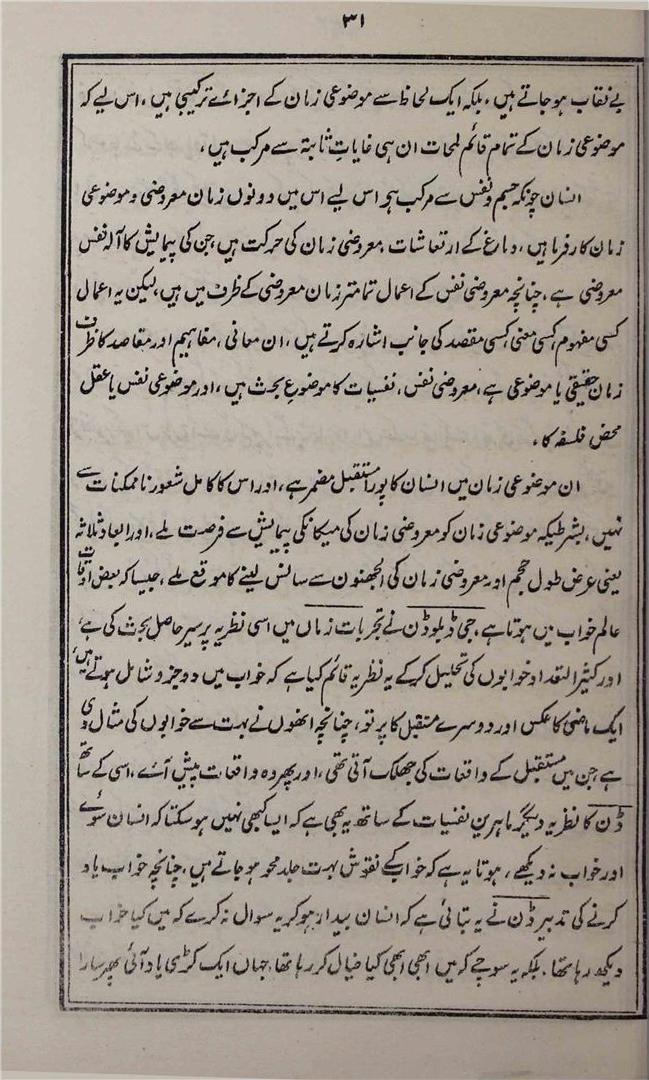 ۳۱
بے نقاب ہو جاتے ہیں، بلکہ ایک لحاظ سے موضوعی زمان کے اجزائے ترکیبی ہیں، اس لیے کہ
موضوعی زمان کے تمام قائم لمحات ان ہی غایاتِ ثابتہ سے مرکب ہیں،
انسان چونکہ جسم و نفس سے مرکب ہے اس لیے اس میں دونوں زمان معروضی و موضوعی
زمان کارفرما ہیں، دماغ کے ارتعاشات معروضی زمان کی حرکت ہیں، جن کی پیمایش کا آلہ نفس
معروضی ہے، چنانچہ معروضی نفس کے اعمال تمامتر زمان معروضی کے ظرف میں ہیں، لیکن یہ اعمال
کسی مفہوم، کسی معنی، کسی مقصد کی جانب اشارہ کرتے ہیں، ان معانی، مفاہیم اور مقاصد کا ظرف
زمان حقیقی یا موضوعی ہے، معروضی نفس، نفسیات کا موضوعِ بحث ہیں، اور موضوعی نفس یا عقل
محض فلسفہ کا،
ان موضوعی زمان میں انسان کا پورا مستقبل مضمر ہے، اور اس کا کامل شعور ناممکنات سے
نہیں، بشرطیکہ موضوعی زمان کو معروضی زمان کی میکانکی پیمایش سے فرصت ملے، اور ابعاد ثلاثہ
یعنی عرض طول حجم اور معروضی زمان کی الجھنون سے سانس لینے کا موقع ملے، جیسا کہ بعض اوقات
عالم خواب میں ہوتا ہے، جی ڈبلو ڈن نے تجربات زماں میں اسی نظریہ پر سیر حاصل بحث کی ہے،
اور کثیر التعداد خوابوں کی تحلیل کر کے یہ نظریہ قائم کیا ہے کہ خواب میں دو جزو شامل ہوتے ہیں،
ایک ماضی کا عکس اور دوسرے مستقبل کا پرتو، چنانچہ انھوں نے بہت سے خوابوں کی مثال دی
ہے جن میں مستقبل کے واقعات کی جھلک آتی تھی، اور پھر وہ واقعات پیش آئے، اسی کے ساتھ
ڈن کا نظریہ دیگر ماہرین نفسیات کے ساتھ یہ بھی ہے کہ ایسا کبھی نہیں ہو سکتا کہ انسان سوئے
اور خواب نہ دیکھے، ہوتا یہ ہے کہ خواب کے نقوش بہت جلد محو ہو جاتے ہیں، چنانچہ خواب یاد
کرنے کی تدبیر ڈن نے یہ بتائی ہے کہ انسان بیدار ہو کر یہ سوال نہ کرے کہ میں کیا خواب
دیکھ رہا تھا، بلکہ یہ سوچے کہ میں ابھی ابھی کیا خیال کر رہا تھا، جہاں ایک کڑی یاد آئی پھر سارا